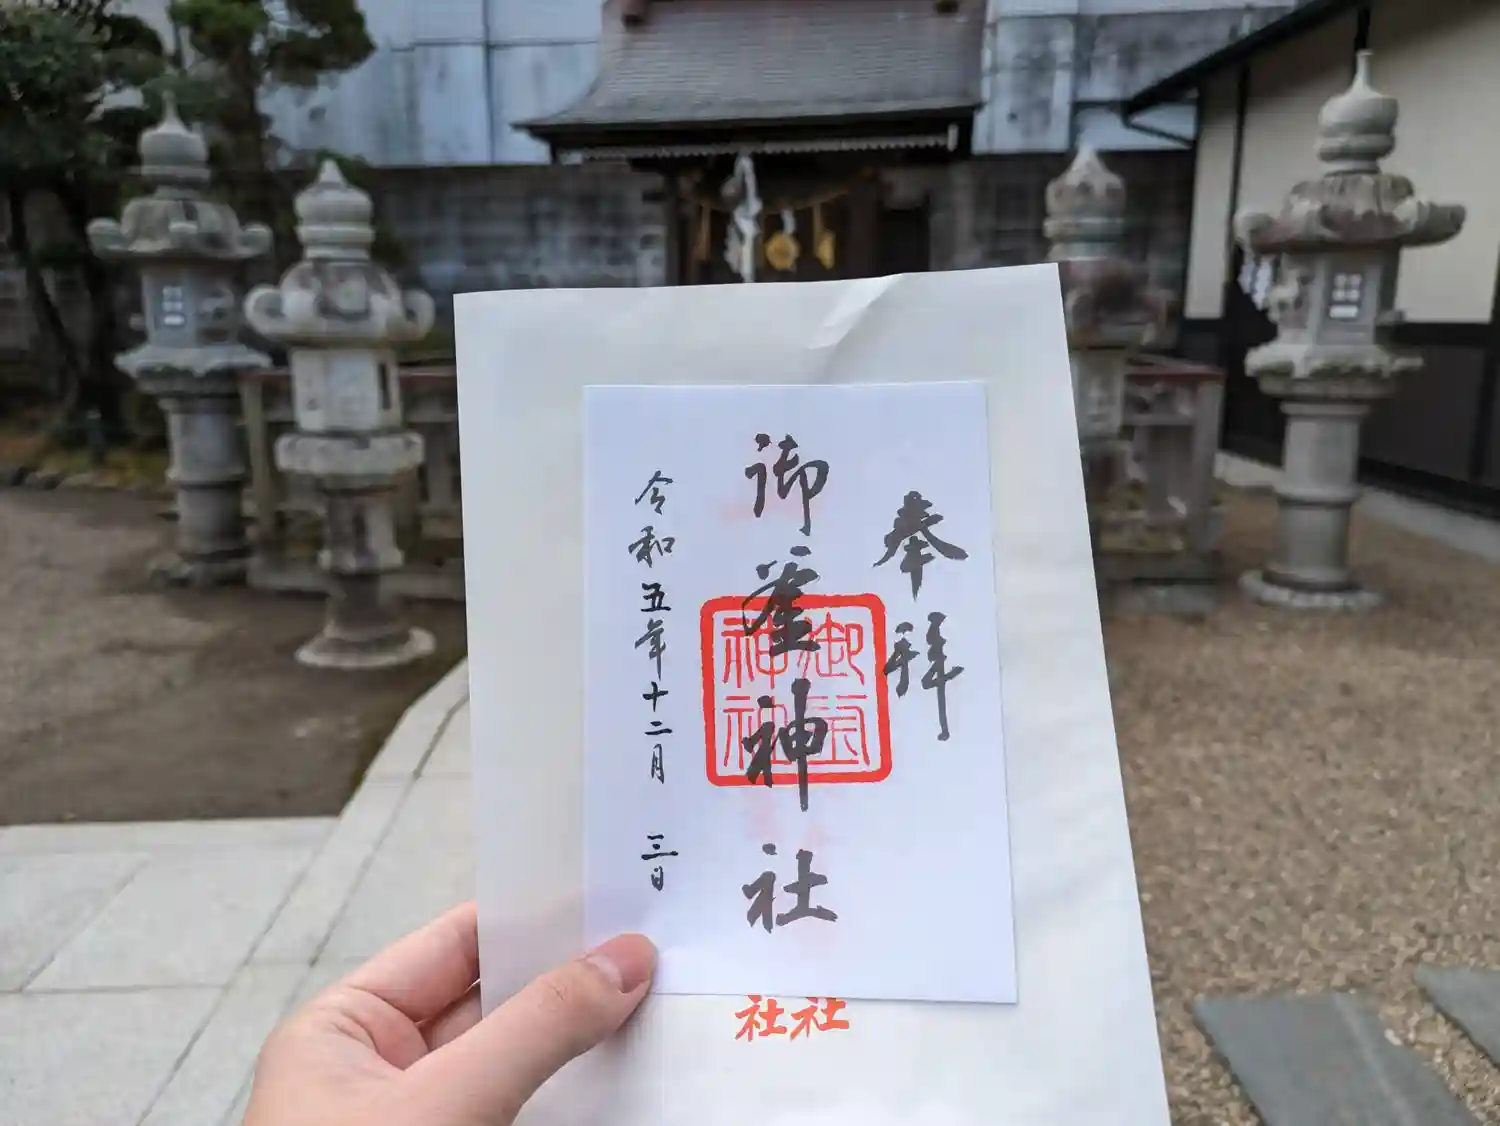 奉拝
御釜神社
令和五年十二月 三日
御釜
神社
社社